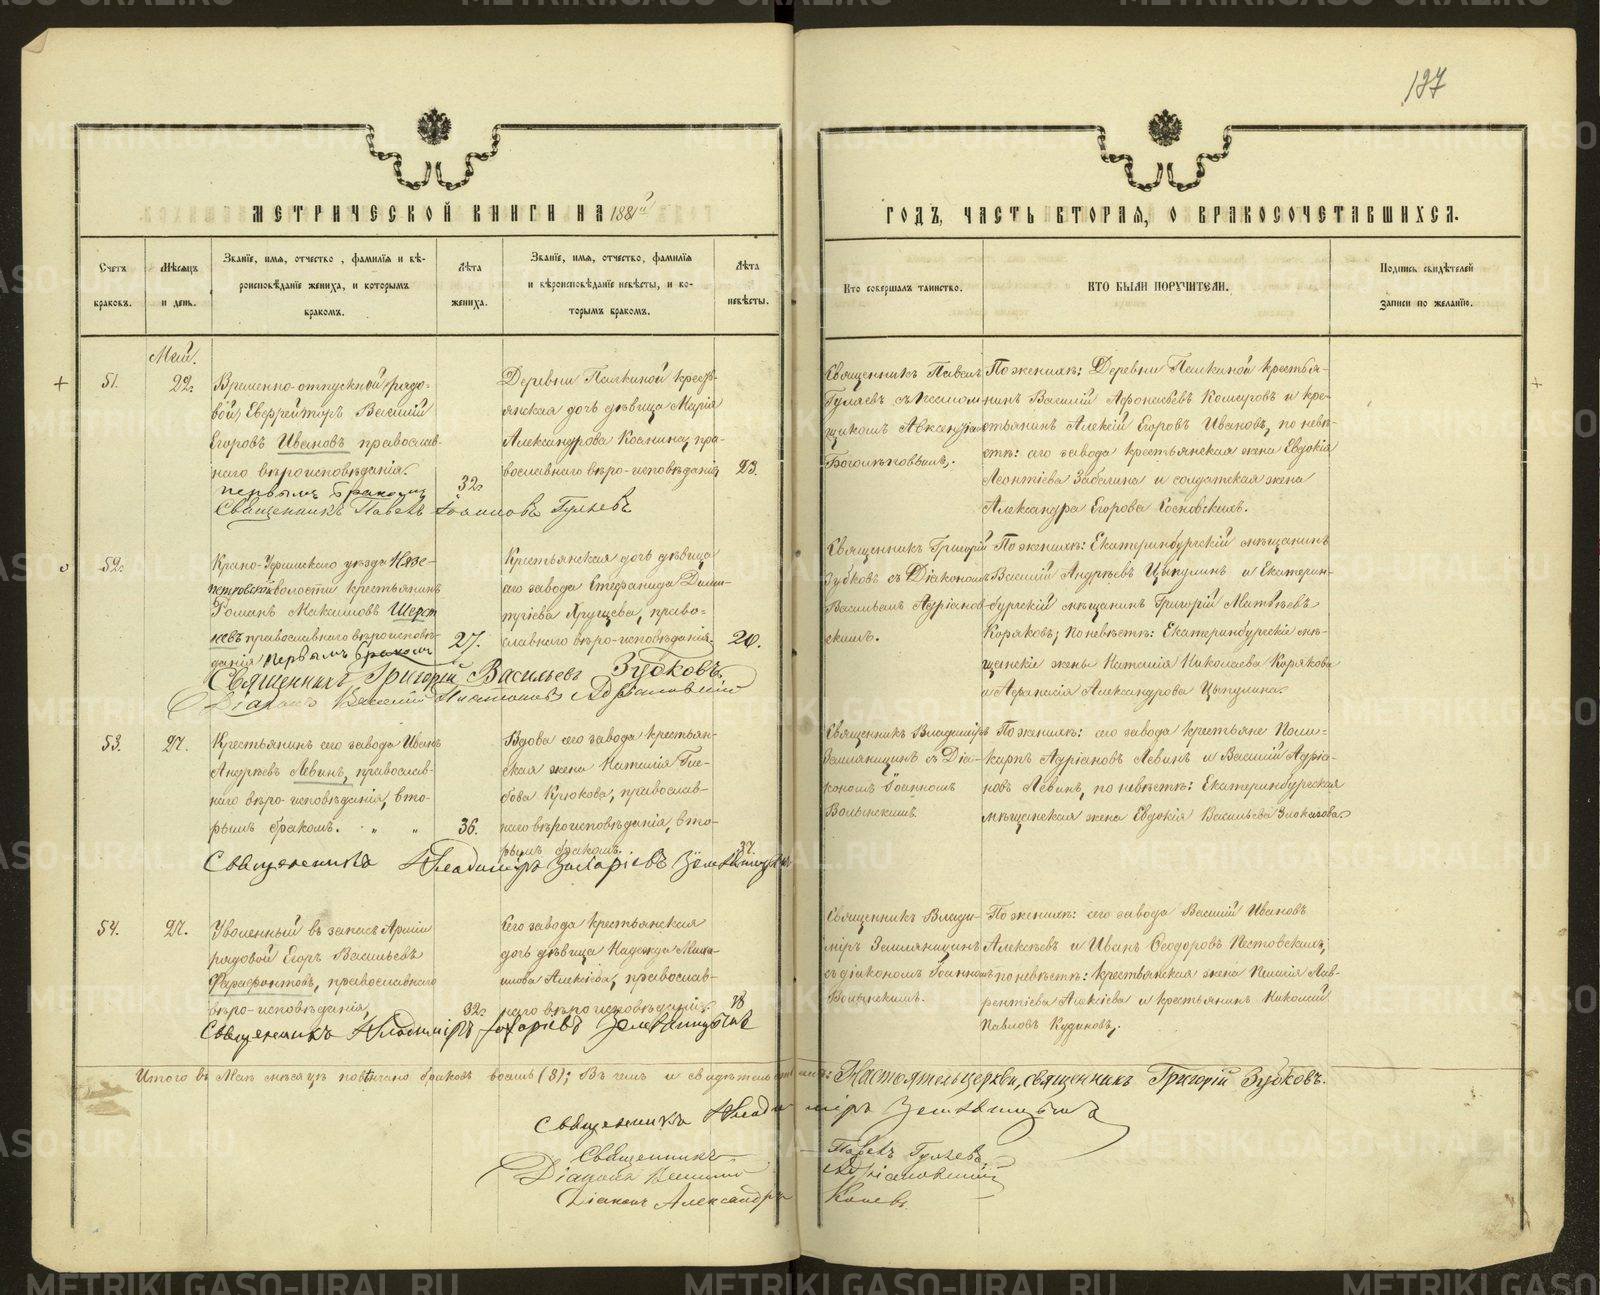 187
МЕТРИЧЕСКОЙ КНИГИ НА 1881й
ГОДЪ, ЧАСТЬ ВТОРАЯ, О БРАКОСОЧЕТАВШИХСЯ.
Счетъ браковъ.
Мѣсяцъ и день.
Званіе, имя, отчество, фамилія и вѣ-
роисповѣданіе жениха, и которымъ
бракомъ.
Лѣта
жениха.
Званіе, имя, отчество, фамилія
и вѣроисповѣданіе невѣсты, и ко-
торымъ бракомъ.
Лѣта
невѣсты.
Кто совершалъ таинство.
КТО БЫЛИ ПОРУЧИТЕЛИ.
Подпись свидѣтелей
записи по желанію.
Май.
51.
22.
Временно-отпускной рядо-
вой, Ефрейторъ Василій
Егоровъ Ивановъ православ-
наго вѣроисповѣданія.
первымъ бракомъ
32.
Деревни Палкиной кресть-
янская дочь дѣвица Марія
Александрова Косинина, пра-
вославнаго вѣро-исповѣданія,
23.
Священникъ Павелъ Гуляевъ
Священникъ Павелъ
Гуляевъ съ Псалом-
щикомъ
По женихѣ: Деревни Палкиной крестья-
нинъ Василій Афонасьевъ Комаровъ и кре-
стьянинъ Алексѣй Егоровъ Ивановъ, по невѣ-
стѣ: сего завода крестьянская жена Евдокія
Леонтіева Забелина и солдатская жена
Александра Егорова Сосновскихъ.
52.
Красно-Уфимскаго уѣзда Нязе-
петровской волости крестьянинъ
Романъ Максимовъ Шерст
невъ православнаго вѣроисповѣ-
данія первымъ бракомъ
27.
Крестьянская дочь дѣвица
сего завода Стефанида Дими-
тріева Хрущева, право-
славнаго вѣро-исповѣданія.
20.
Священникъ Григорій Васильевъ Зубковъ
Діаконъ Василій Адріановскій
Священникъ Григорій
Зубковъ съ Діакономъ
Васильемъ Адріанов-
скимъ.
По женихѣ: Екатеринбургскій мѣщанинъ
Василій Андреевъ Цыпулинъ и Екатерин-
бургскій мѣщанинъ Григорій Матвѣевъ
Коряковъ; по невѣстѣ: Екатеринбургскіе мѣ-
щанскіе жены Наталія Николаева Корякова
и Афанасія Александрова Цыпулина.
53.
27.
Крестьянинъ сего завода Иванъ
Андреевъ Левинъ, православ-
наго вѣро-исповѣданія, вто-
рымъ бракомъ. " "
36.
Вдова сего завода крестьян-
ская жена Наталія Глѣ-
бова Крюкова, православ-
наго вѣроисповѣданія, вто-
рымъ бракомъ.
37.
Священникъ Владиміръ Захаріевъ Земляницынъ
Священникъ Владиміръ
Земляницынъ съ Діа-
кономъ Іоанномъ
Волынскимъ
По женихѣ: сего завода крестьяне Поли-
карпъ Адріановъ Левинъ и Василій Адріа-
новъ Левинъ, по невѣстѣ: Екатеринбургская
мѣщанская жена Евдокія Васильева Злоказова.
54.
27.
Уволенный въ запасъ Арміи
рядовой Егоръ Васильевъ
Фарафонтовъ, православнаго
вѣро-исповѣданія,
32.
Сего завода крестьянская
дочь дѣвица Надежда Миха-
илова Алексѣева, православ-
наго вѣроисповѣданія.
18
Священникъ Владиміръ Захаріевъ Земляницынъ
Священникъ Влади-
міръ Земляницынъ
съ діакономъ Іоанномъ
Волынскимъ.
По женихѣ: сего завода Василій Ивановъ
Алексѣевъ и Иванъ Ѳеодоровъ Пестовскихъ,
по невѣстѣ: крестьянская жена Лав-
рентіева Алексіева и крестьянинъ Николай
Павловъ Кудиновъ.
Итого въ Маѣ мѣсяцѣ повѣнчано браковъ восемь (8); Въ чемъ и свидѣтельствуемъ: Настоятель церкви, священникъ Григорій Зубковъ.
Священникъ Владиміръ Земляницынъ
Священникъ Павелъ Гуляевъ
Діаконъ Василій Адріановскій
Діаконъ Александръ
METRIKI.GASO-URAL.RU